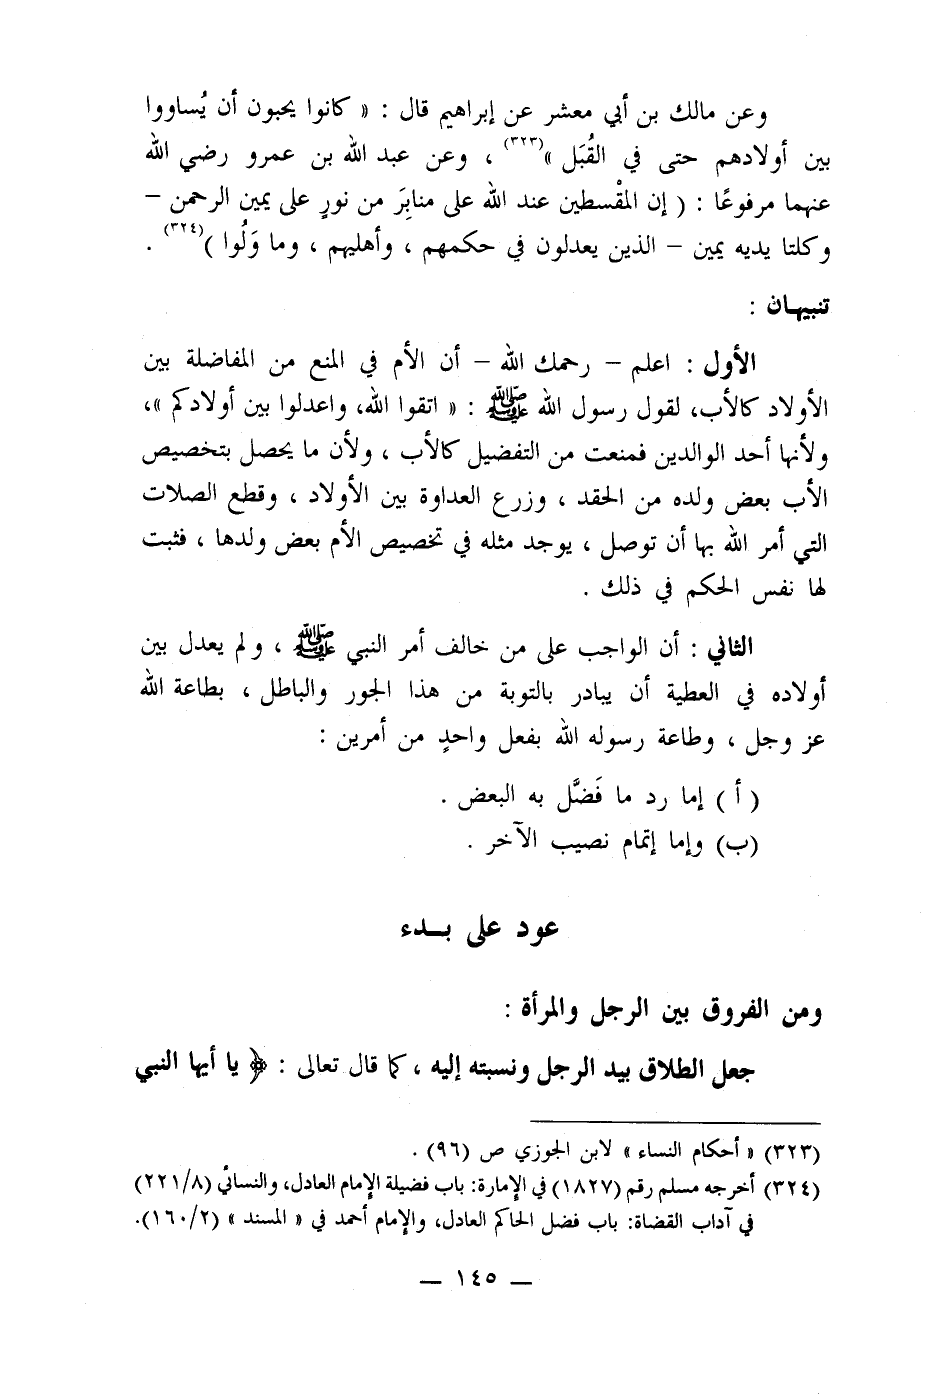 وعن مالك بن أبي معشر عن إبراهيم قال : « كانوا يحبون أن يُساووا
بين أولادهم حتى في القُبَل »(٣٢٣) ، وعن عبد الله بن عمرو رضي الله
عنهما مرفوعًا : ( إن المقْسطين عند الله على منابِرَ من نورٍ على يمين الرحمن –
وكلتا يديه يمين – الذين يعدلون في حكمهم ، وأهليهم ، وما وَلُوا )(٣٢٤) .
تنبيهان :
الأول : اعلم – رحمك الله – أن الأم في المنع من المفاضلة بين
الأولاد كالأب، لقول رسول الله ﷺ : « اتقوا الله، واعدلوا بين أولادكم »،
ولأنها أحد الوالدين فمنعت من التفضيل كالأب ، ولأن ما يحصل بتخصيص
الأب بعض ولده من الحقد ، وزرع العداوة بين الأولاد ، وقطع الصلات
التي أمر الله بها أن توصل ، يوجد مثله في تخصيص الأم بعض ولدها ، فثبت
لها نفس الحكم في ذلك .
الثاني : أن الواجب على من خالف أمر النبي ﷺ ، ولم يعدل بين
أولاده في العطية أن يبادر بالتوبة من هذا الجور والباطل ، بطاعة الله
عز وجل ، وطاعة رسوله الله بفعل واحدٍ من أمرين :
( أ ) إما رد ما فَضَّل به البعض .
(ب) وإما إتمام نصيب الآخر .
عود على بـدء
ومن الفروق بين الرجل والمرأة :
جعل الطلاق بيد الرجل ونسبته إليه ، كما قال تعالى : ﴿ يا أيها النبي
(٣٢٣) « أحكام النساء » لابن الجوزي ص (٩٦) .
(٣٢٤) أخرجه مسلم رقم (١٨٢٧) في الإمارة: باب فضيلة الإمام العادل، والنسائي (٢٢١/٨)
في آداب القضاة: باب فضل الحاكم العادل، والإمام أحمد في « المسند » (١٦٠/٢).
— ١٤٥ —